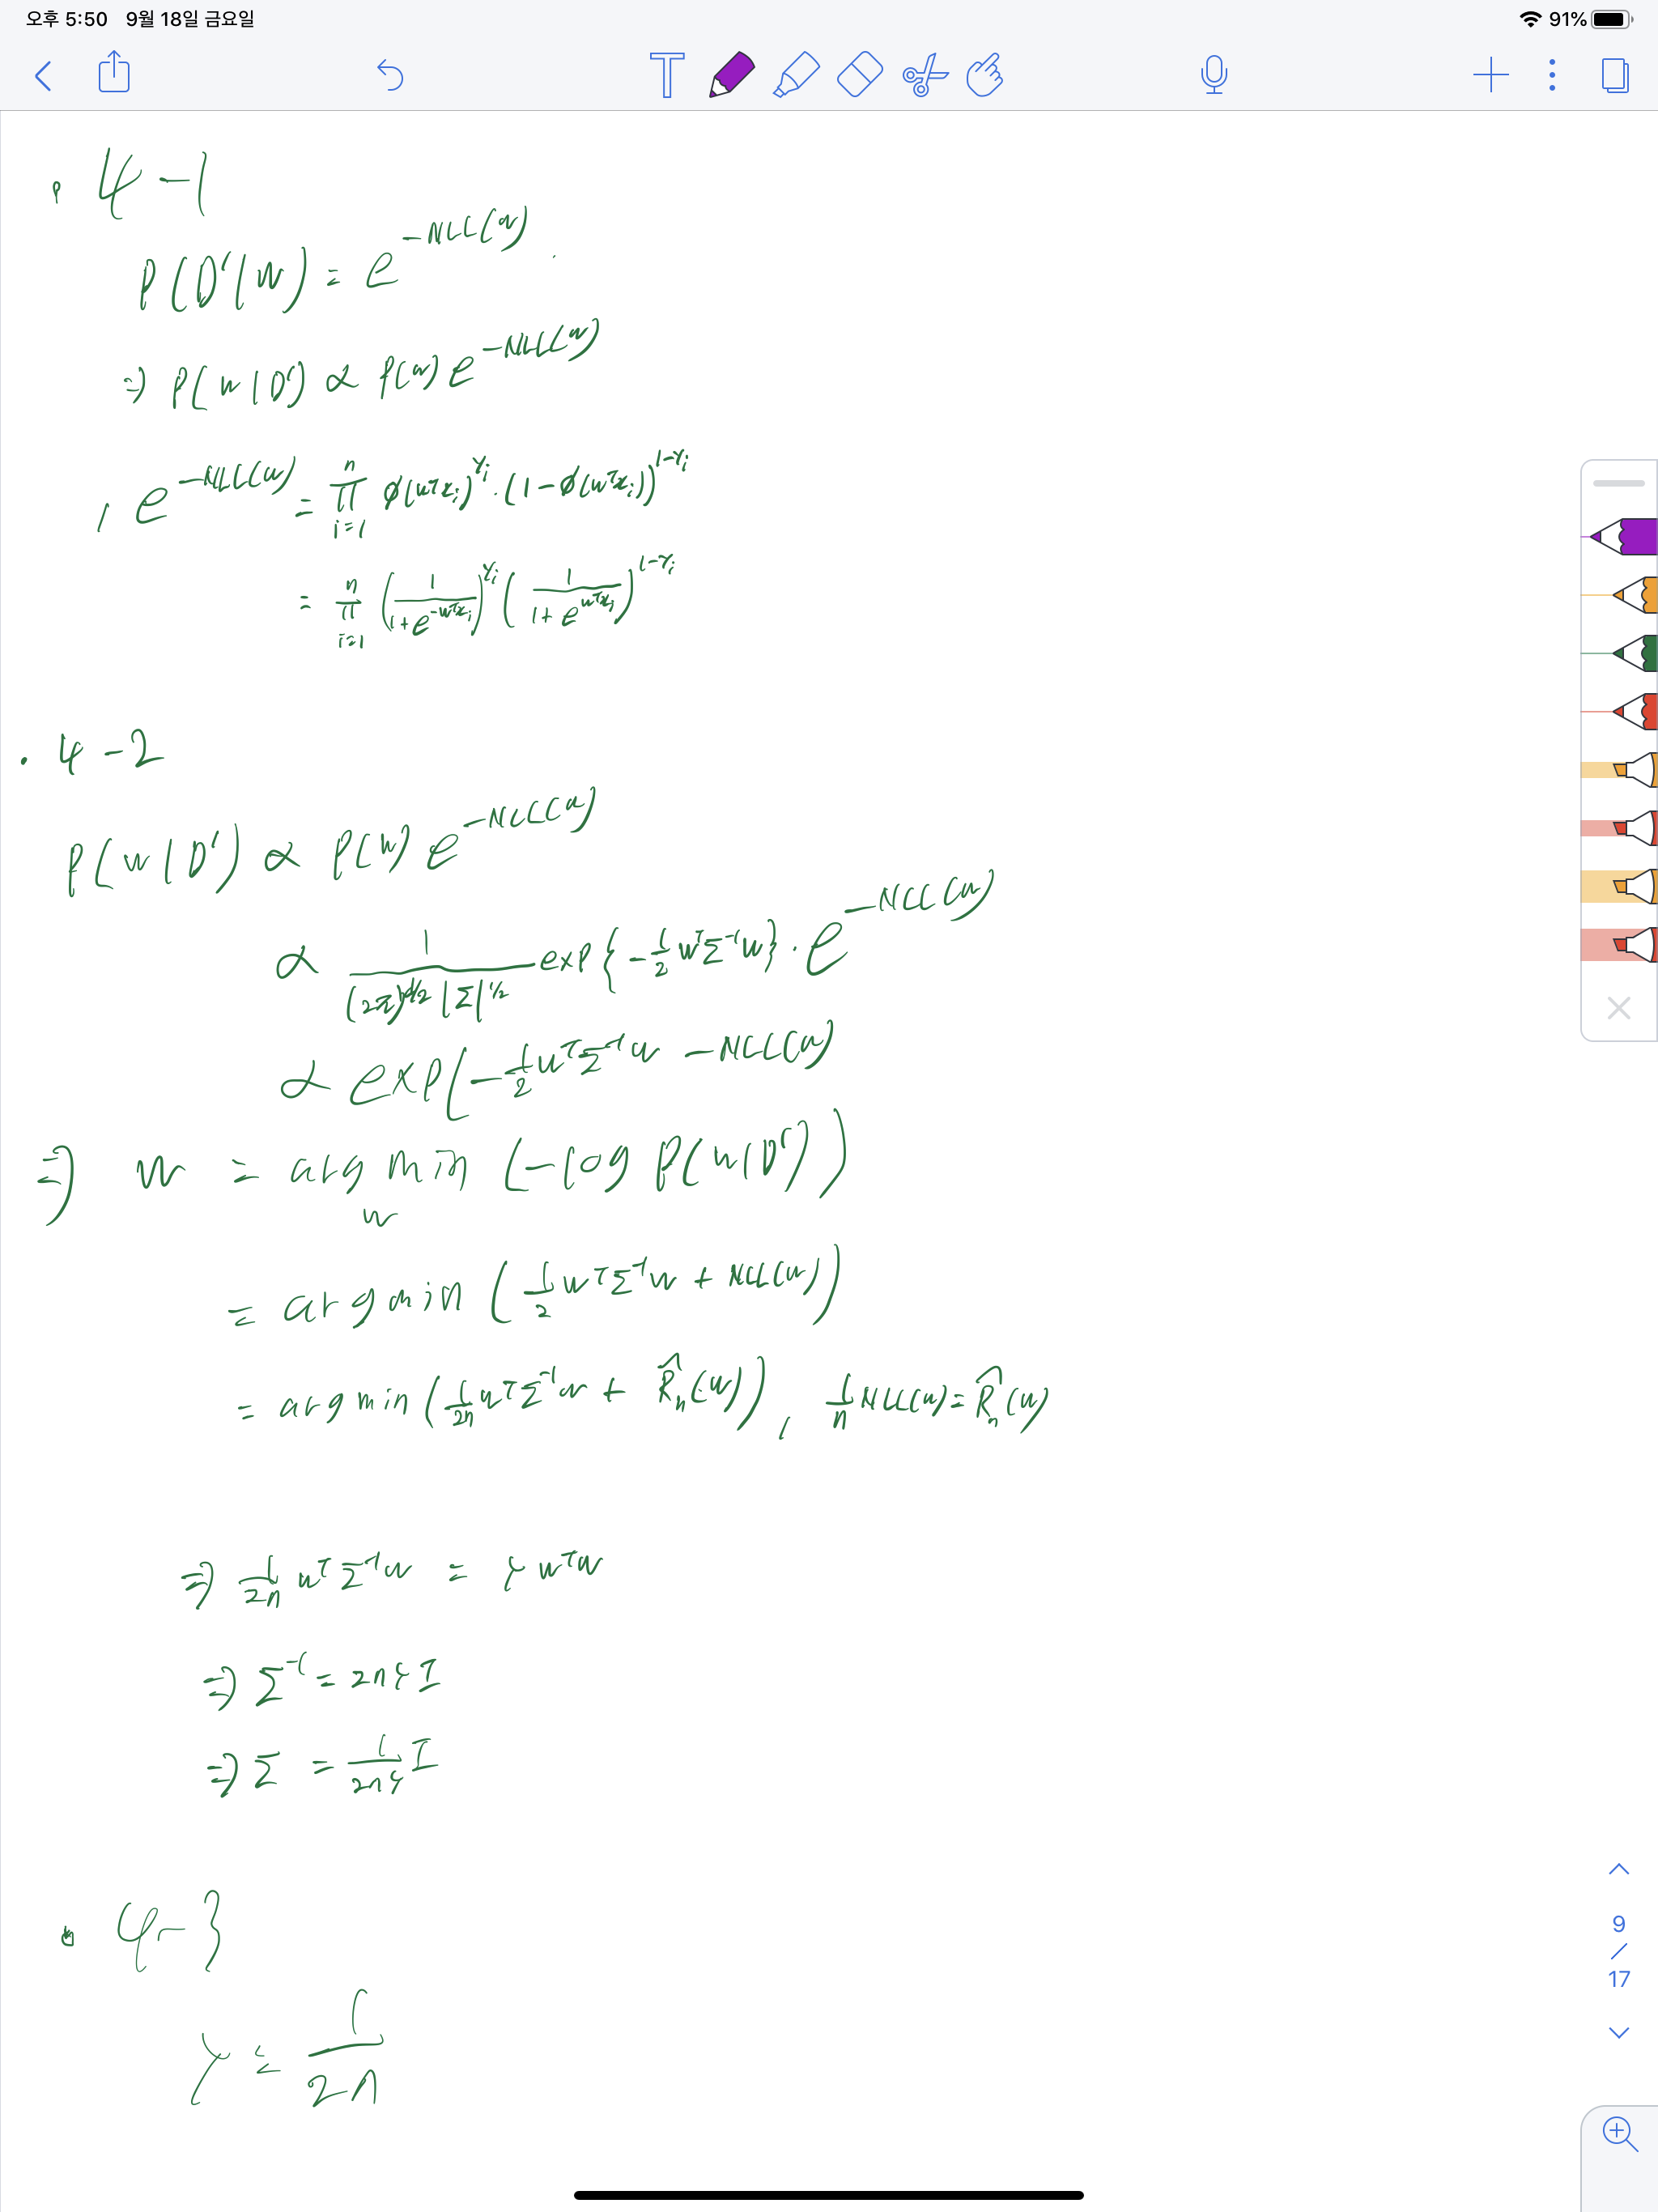 오후 5:50 9월 18일 금요일 91%
4-1
P(D'|W) = e^{-NLL(w)}
⇒ P(w|D') ∝ P(w) e^{-NLL(w)}
, e^{-NLL(w)} = ∏_{i=1}^{n} ∅(w^T x_i)^{y_i} · (1-∅(w^T x_i))^{1-y_i}
= ∏_{i=1}^{n} (1/(1+e^{-w^T x_i}))^{y_i} (1/(1+e^{w^T x_i}))^{1-y_i}
· 4-2
P(w|D') ∝ P(w) e^{-NLL(w)}
∝ 1/((2π)^{d/2} |Σ|^{1/2}) exp{-1/2 w^T Σ^{-1} w} · e^{-NLL(w)}
∝ exp(-1/2 w^T Σ^{-1} w - NLL(w)
⇒ w = arg min_w (-log P(w|D'))
= argmin (1/2 w^T Σ^{-1} w + NLL(w))
= argmin (1/2n w^T Σ^{-1} w + R̂_n(w)) , 1/n NLL(w) = R̂_n(w)
⇒ 1/2n w^T Σ^{-1} w = λ w^T w
⇒ Σ^{-1} = 2nλ I
⇒ Σ = 1/2nλ I
4-3
λ = 1/2n
9
/
17